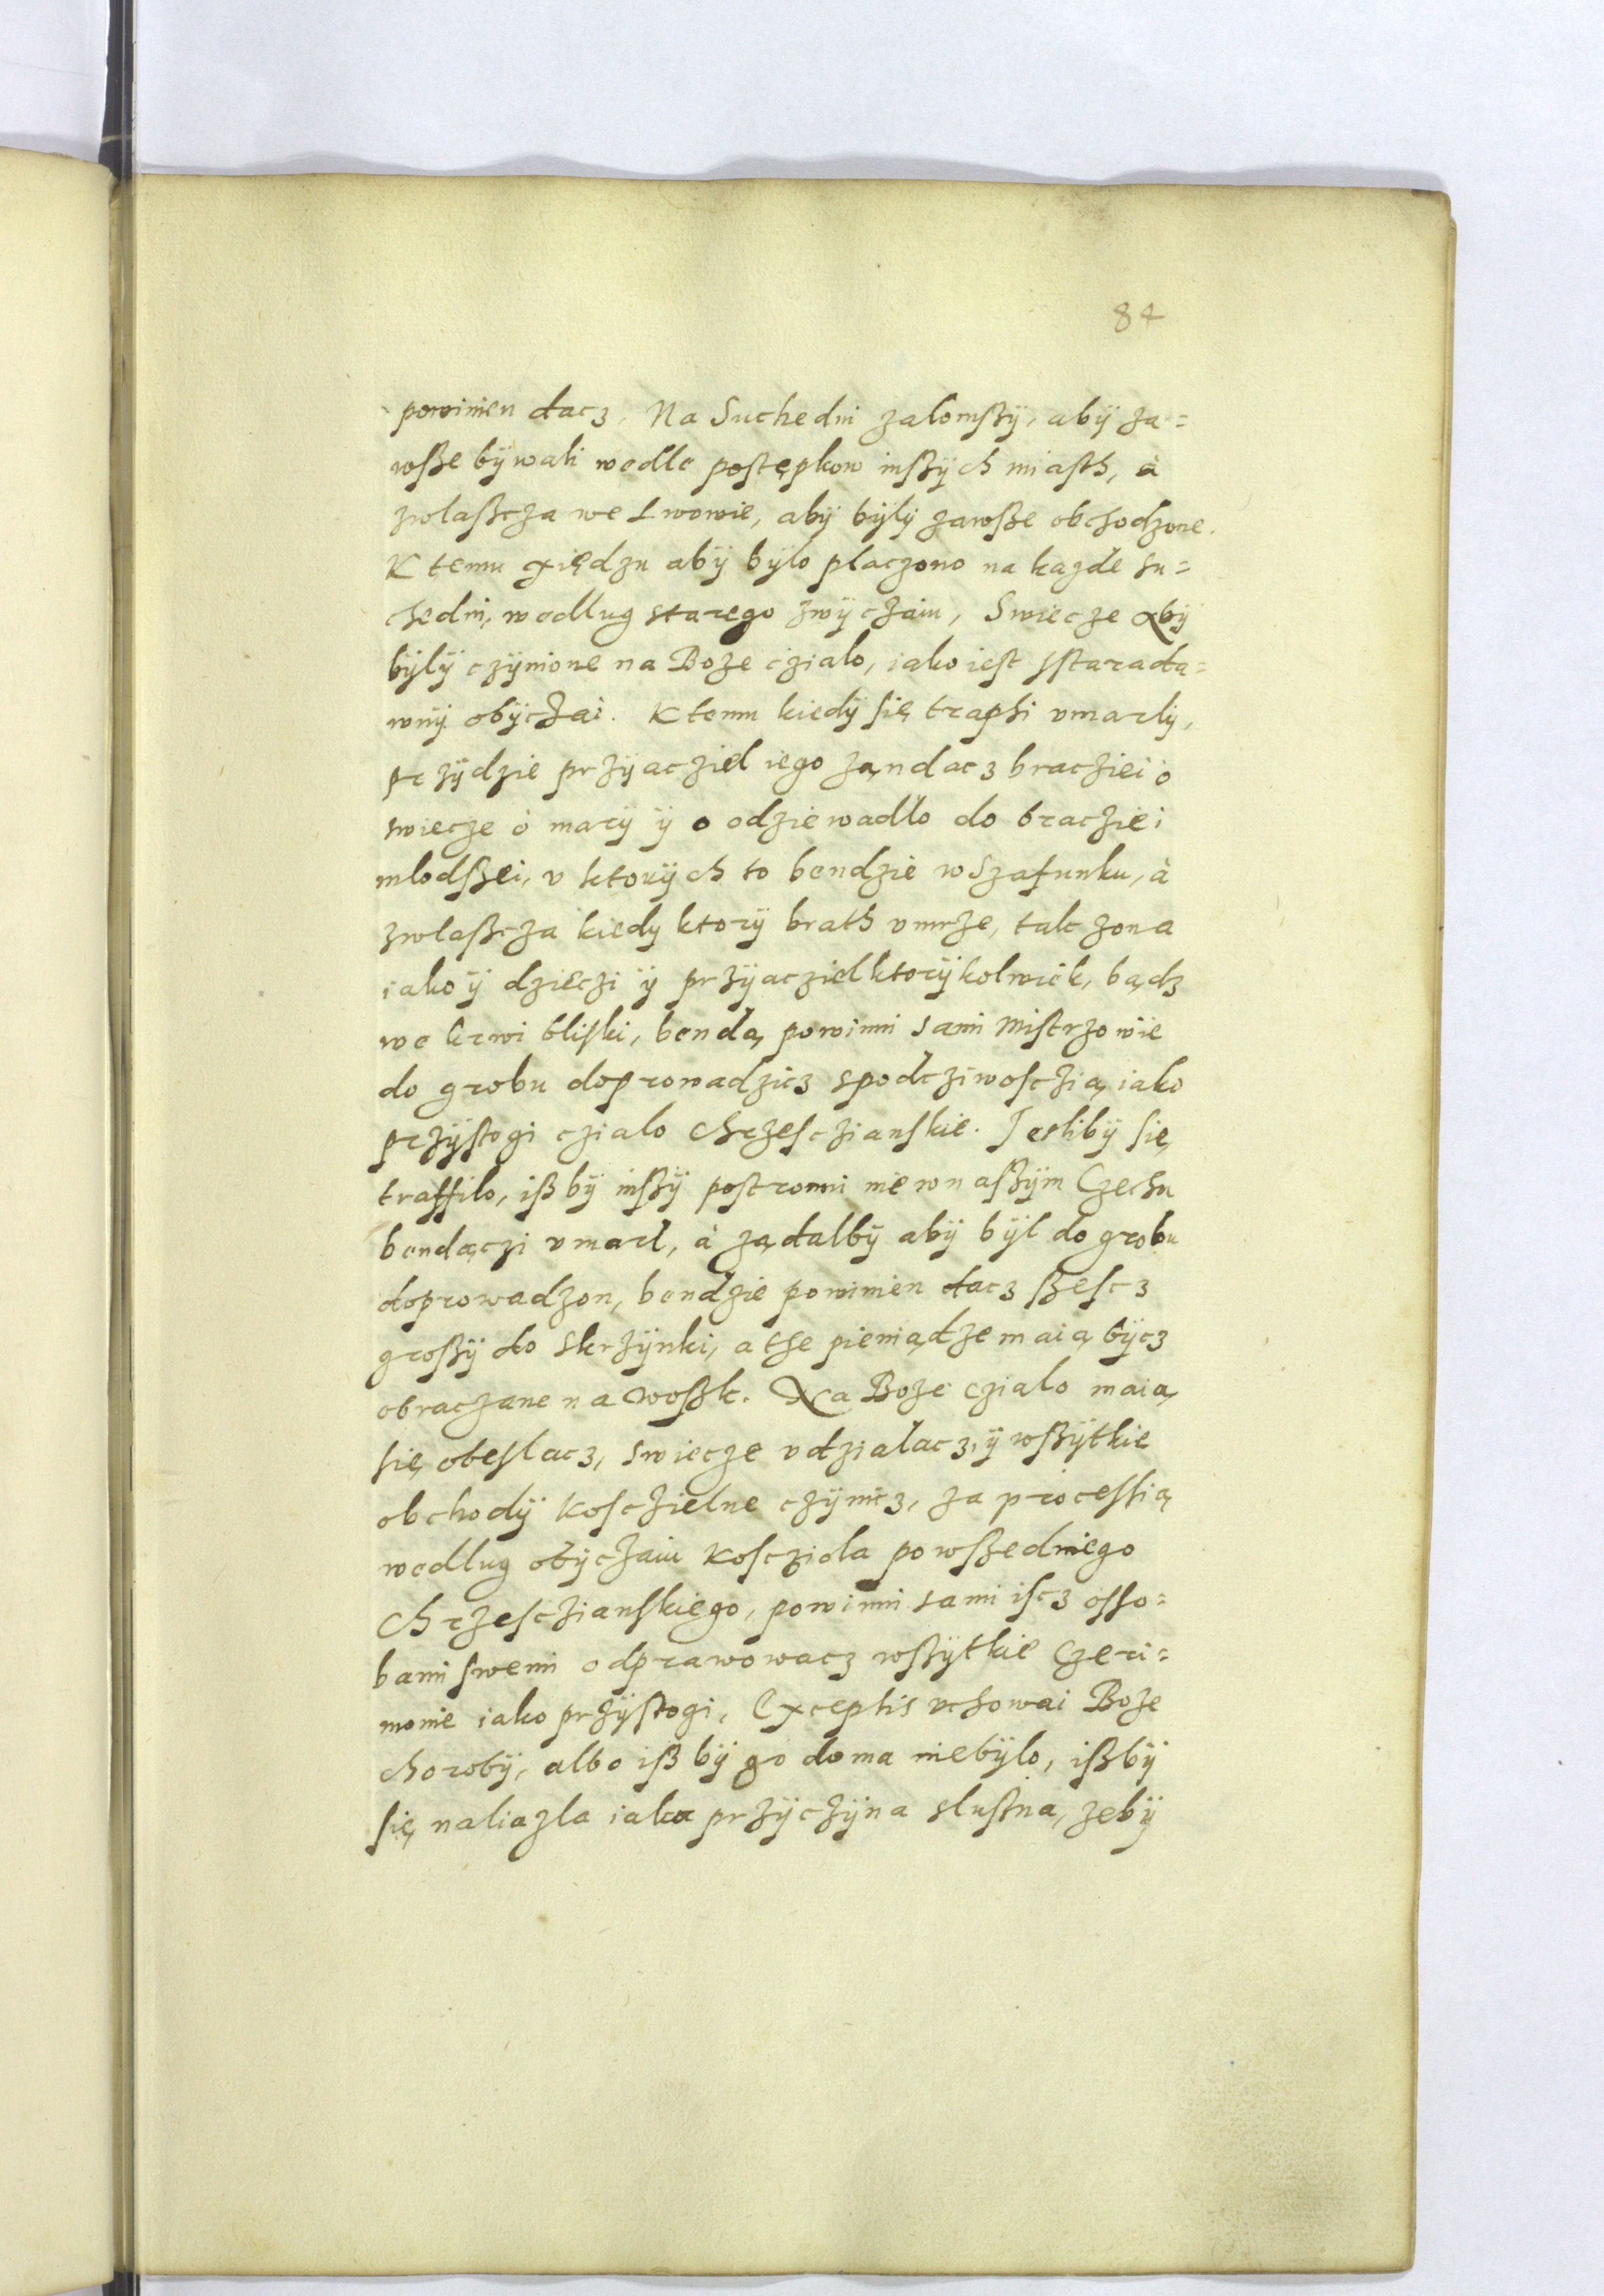 84
powinien dacz, Na Suchedni zalomßÿ, abÿ za=
wße bÿwali wedle postępkow inßÿch miasth, à
zwlaßcza we Lwowie, abÿ bÿlÿ zawße obchodzone.
K temu xiędzu abÿ bÿlo placzono na kazde su=
chedni, wedlug starego zwÿczaiu, Swiecze abÿ
bÿlÿ czÿnione na Boze czialo, iako iest sstarada=
wnÿ obÿczai. K temu kiedÿ się traphi vmarlÿ,
przÿdzie przÿacziel iego ządacz braczieiˈ o
swiecze o marÿ ÿ o odziewadlo do braczieiˈ
mlodßei, v ktorÿch to bendzie w szafunku, à
zwlaßcza kiedy ktorÿ brath vmrze, tak zona
iako ÿ dzieczi ÿ przÿacziel ktorÿkolwiek, bądz
we krwi bliski, bendą powinni sami Mistrzowie
do grobu doprowadzicz spodcziwosczią, iako
przÿstogi czialo chrzesczianskie. Jesliby się
traffilo, ißbÿ inßÿ postronni nie w naßÿm Czechu
bendączi vmarl, à ządalbÿ abÿ bÿl do grobu
doprowadzon, bendzie powinien dacz ßescz
großÿ do skrzÿnki, a the pieniądze maią bÿcz
obraczane na woßk. Na Boze czialo maią
się obeslacz, swiecze vdzialacz, ÿ wßÿtkie
obchodÿ kosczielne czÿnicz, za processią
wedlug obÿczaiu kosciola powßedniego
chrzesczianskiego, powinni sami iscz osso=
bami swemi odprawowacz wßÿtkie Czeri=
monie iako przÿstogi, Exceptis vchowai Boze
chorobÿ, albo ißbÿ go doma niebÿlo, ißbÿ
się naliazla iaka przÿczÿna slußna, zebÿ